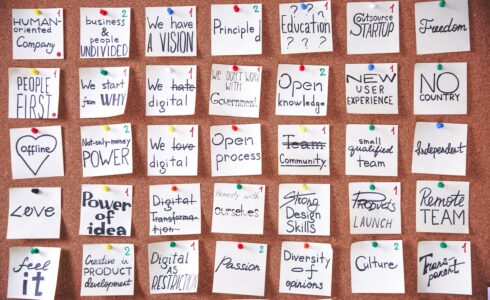 HUMAN-
oriented
Company.
2
business
&
people
UNDIVIDED
1
We have
A VISION
2
Principle
1
Education
? ? ?
? ? ?
1
outsource
STARTUP
Freedom
PEOPLE
FIRST.
2
We start
from WHY
We hate
digital
1
WE DON'T WORK
with
Government
2
Open
knowledge
1
NEW
USER
EXPERIENCE
NO
COUNTRY
Offline
2
Not-only-money
POWER
1
We love
digital
Open
process
1
Team
Community
1
small
qualified
team
Independent
Love
1
Power
of
idea
Digital
Transforma-
tion
1
Honesty with
ourselves
Strong
Design
Skills
1
LAUNCH
Remote
TEAM
feel
it
2
Creative in
PRODUCT
development
1
Digital
AS
RESTRICTION
2
Passion
1
Diversity
of
opinions
2
Culture
1
Trans-
parent